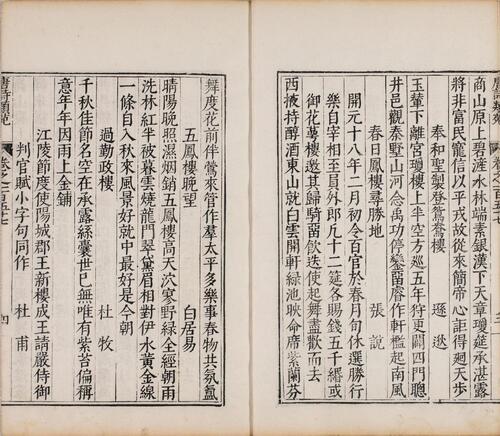 唐詩類苑 卷之一百五十七
商山原上碧滻水林端素銀漢下天章瓊筵承湛露
將非富民寵信以平戎故從來簡帝心詎得廻天步
奉和聖製登鴛鴦樓 遜逖
玉輦下離宮瓊樓上半空方巡五年狩更闢四門聰
井邑觀秦墅山河念禹功停鑾留睿作軒檻起南風
春日鳳樓尋勝地 張說
開元十八年二月初令百官於春月旬休選勝行
樂自宰相至員外郎凢十二筵各賜錢五千緡或
御花萼樓邀其歸騎留飲迭使起舞盡歡而去
西掖持醇酒東山就白雲開軒綠池映命席紫蘭芬
舞度花前伴鶯來管作羣太平多樂事春物共氛氳
五鳳樓晚望 白居易
晴陽晚照濕烟銷五鳳樓高天泬寥野綠全經朝雨
洗林紅半被暮雲燒龍門翠黛眉相對伊水黃金線
一條自入秋來風景好就中最好是今朝
過勤政樓 杜牧
千秋佳節名空在承露絲囊世已無唯有紫苔偏稱
意年年因雨上金鋪
江陵節度使陽城郡王新樓成王請嚴侍御
判官賦小字句同作 杜甫
唐詩類苑 卷之一百五十七 四